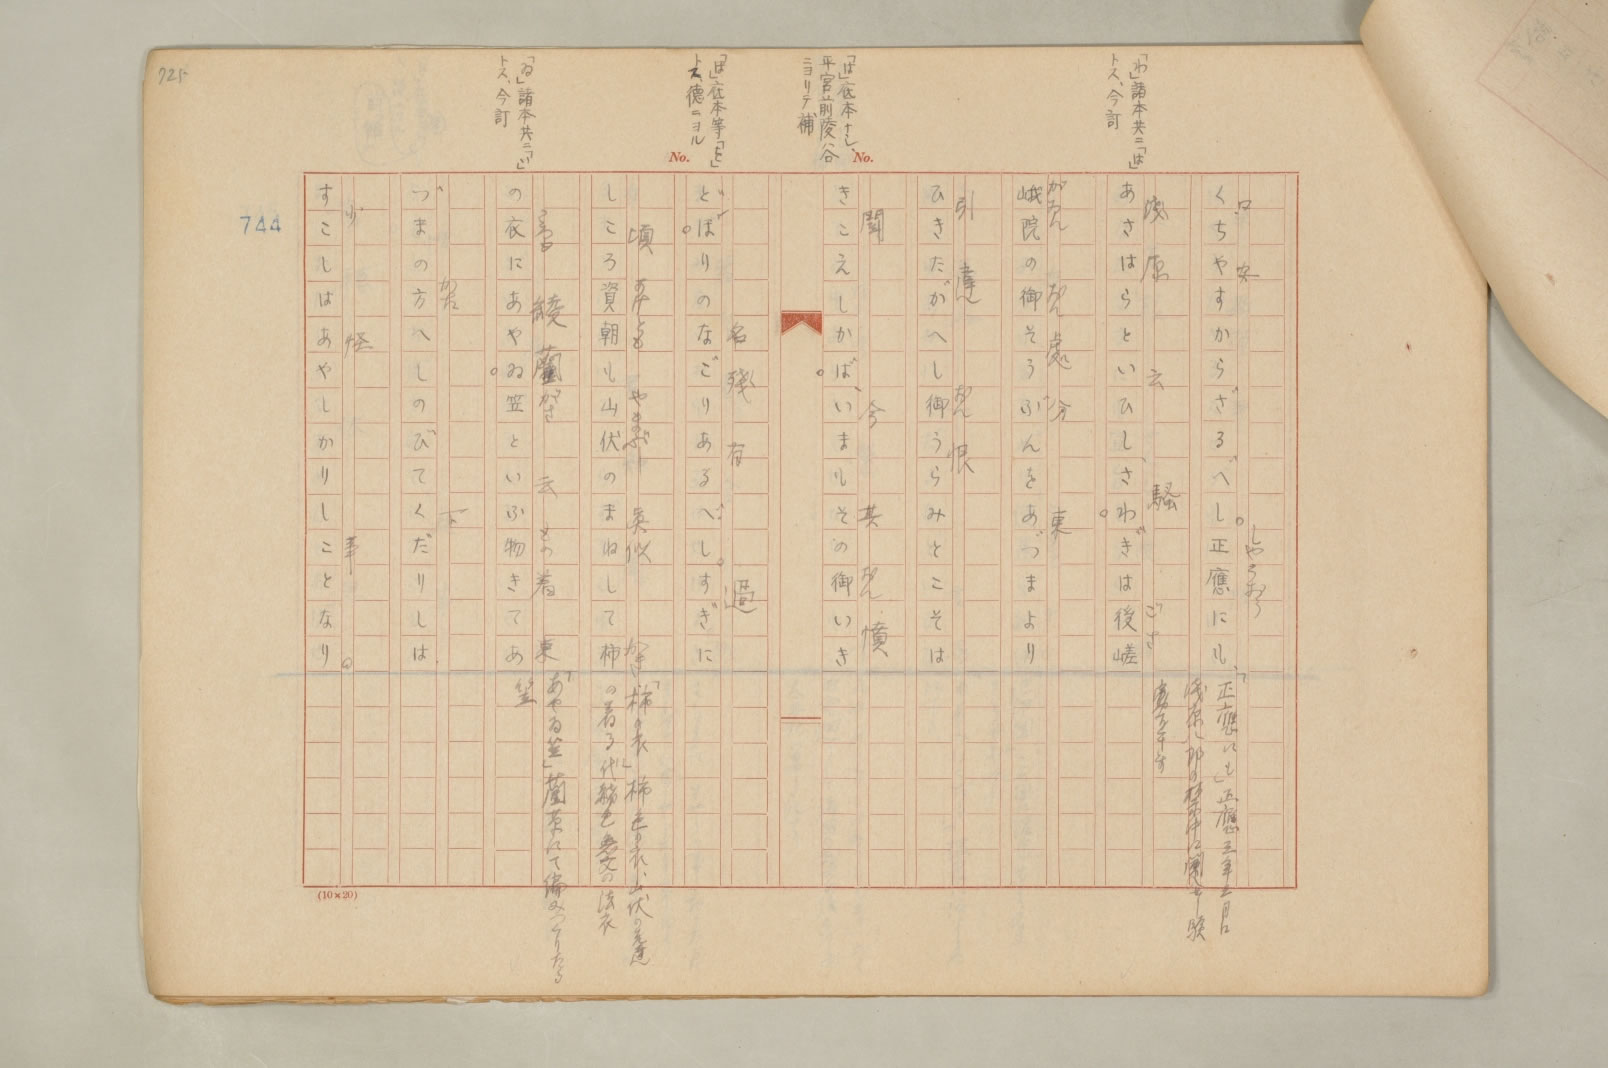 725
744
「わ」諸本共ニ「は」
トス、今訂
「は」底本ナシ、
平宮前陵谷
ニヨリテ補
「ぼ」底本等「と」
トス、德ニヨル
「ゐ」諸本共ニ「い」
トス、今訂
No.
No.
口 安
くちやすからざるべし。正應にも、
しやうおう
浅原 云 騒 ごさ
あさはらといひし、さわぎは後嵯
がゐん おん 處分 東
峨院の御そうぶんをあづまより
引 違 おん 恨
ひきたがへし御うらみとこそは
聞 今 其 おん 憤
きこえしかば、いまもその御いき
名殘 有 過
どほりのなごりあるべし。すぎに
頃 すけとも やまぶし 眞似 かき
しころ資朝も山伏のまねして柿
ころも 綾藺がさ 云 もの 着 東
の衣にあやゐ笠といふ物きてあ
かた 下
づまの方へしのびてくだりしは
少 怪 事
すこしはあやしかりしことなり。
「正應にも」正應三年三月
浅原八郎の禁中に闖
「柿の衣」柿色の衣、山伏の
の着る 色無文の法衣
「あやゐ笠」藺草にて編みつくりたる
笠
(10×20)